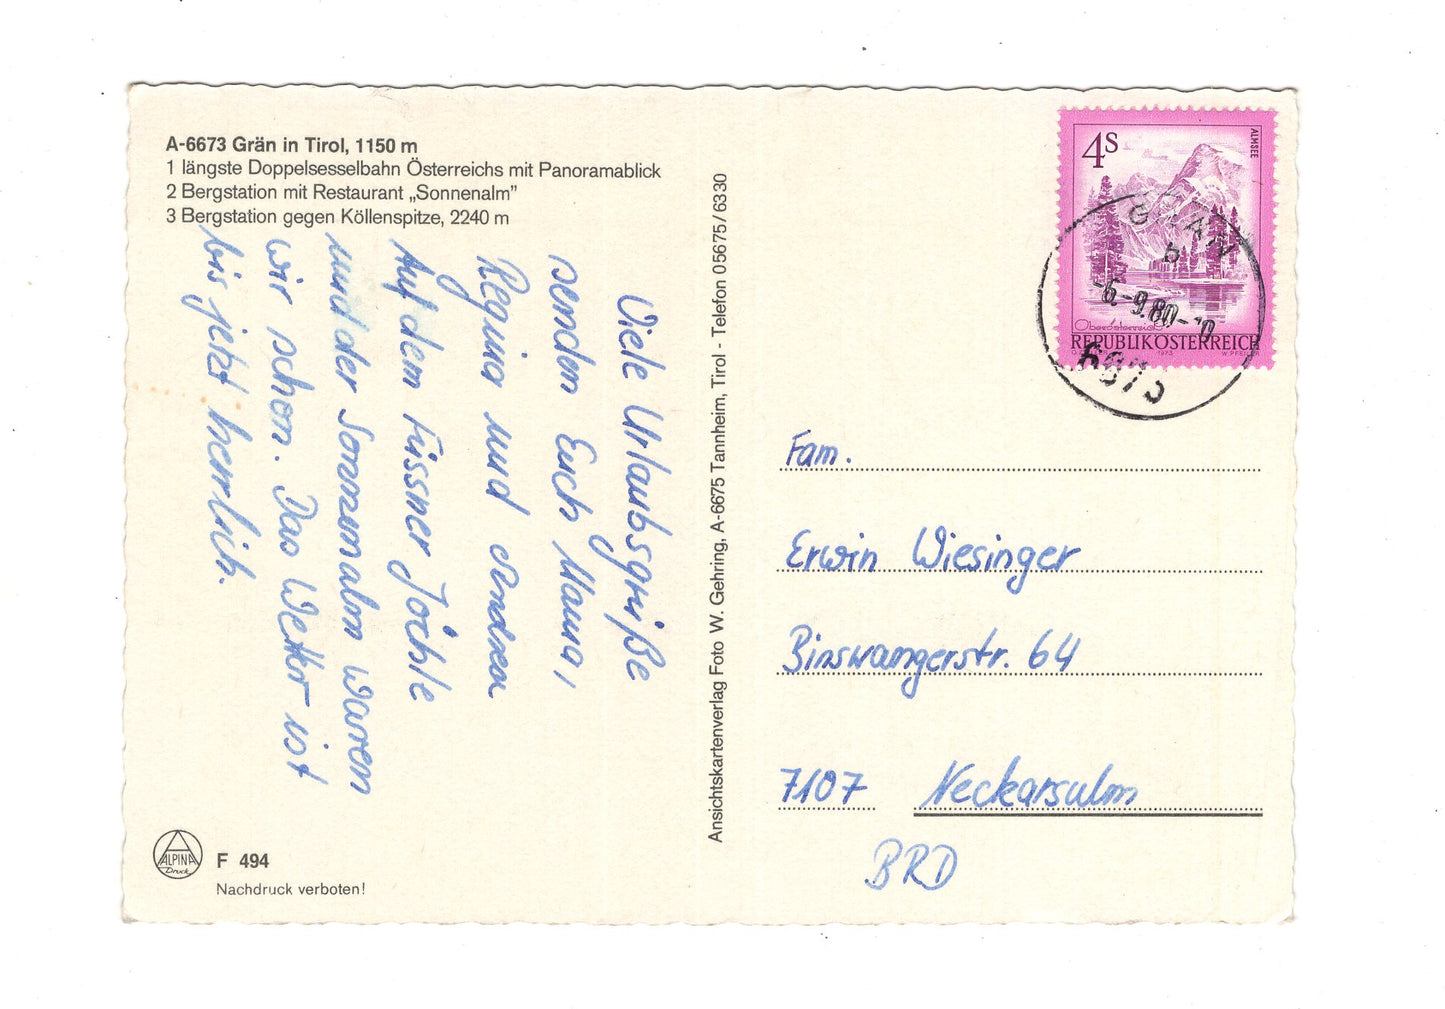 A-6673 Grän in Tirol, 1150 m
1 längste Doppelsesselbahn Österreichs mit Panoramablick
2 Bergstation mit Restaurant „Sonnenalm”
3 Bergstation gegen Köllenspitze, 2240 m
Viele Urlaubsgrüße
senden Euch Mama,
Regina und Andrea
Auf dem Füssner Jöchle
und der Sonnenalm waren
wir schon. Das Wetter ist
bis jetzt herrlich.
ALPINA
Druck
F 494
Nachdruck verboten!
Ansichtskartenverlag Foto W. Gehring, A-6675 Tannheim, Tirol - Telefon 05675/6330
4S
ALMSEE
Oberösterreich
REPUBLIK ÖSTERREICH
1973
W. PFEILER
GRÄN
b
-6.-9.80-
6673
Fam.
Erwin Wiesinger
Binswangerstr. 64
7107 Neckarsulm
BRD